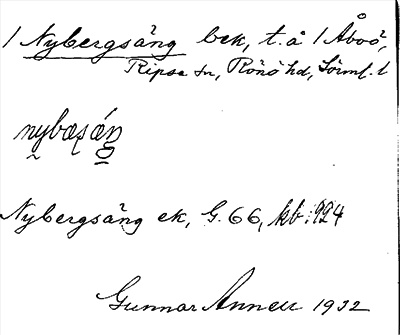 1 Nybergsäng bek, t.å 1 Åboö,
Ripsa sn, Rönö hd, Sörml. l
nybæșǽŋ
Nybergsäng ek, G. 66, kb: 924
Gunnar Anneu 1932